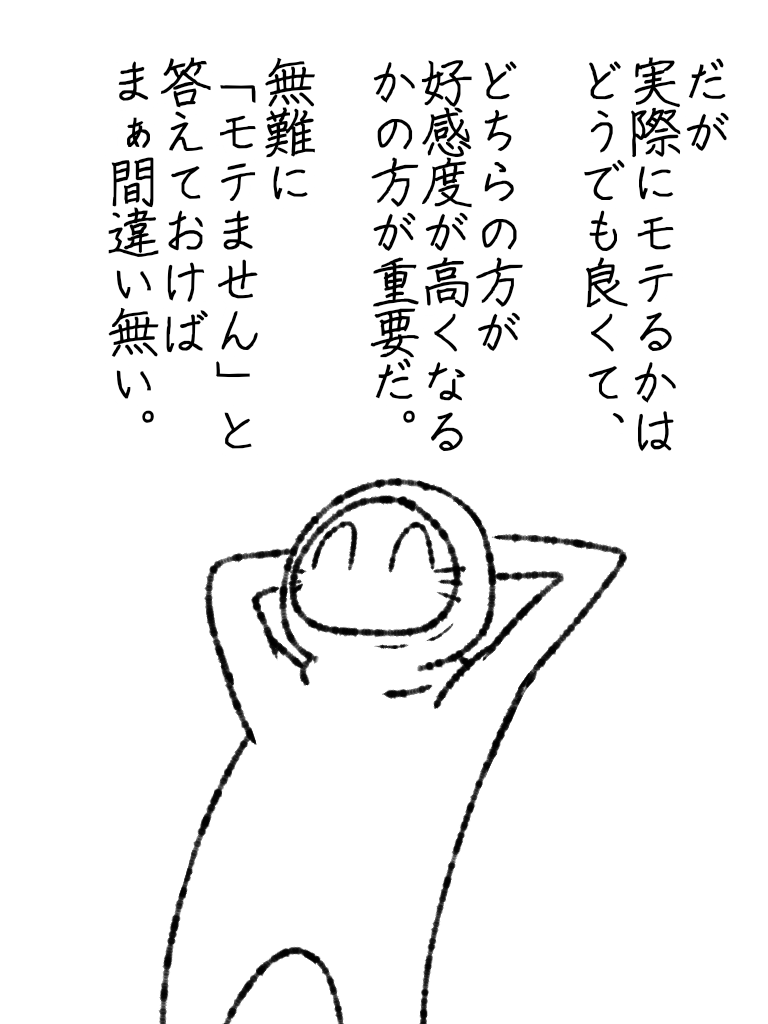 だが
実際にモテるかは
どうでも良くて、
どちらの方が
好感度が高くなる
かの方が重要だ。
無難に
「モテません」と
答えておけば
まぁ間違い無い。